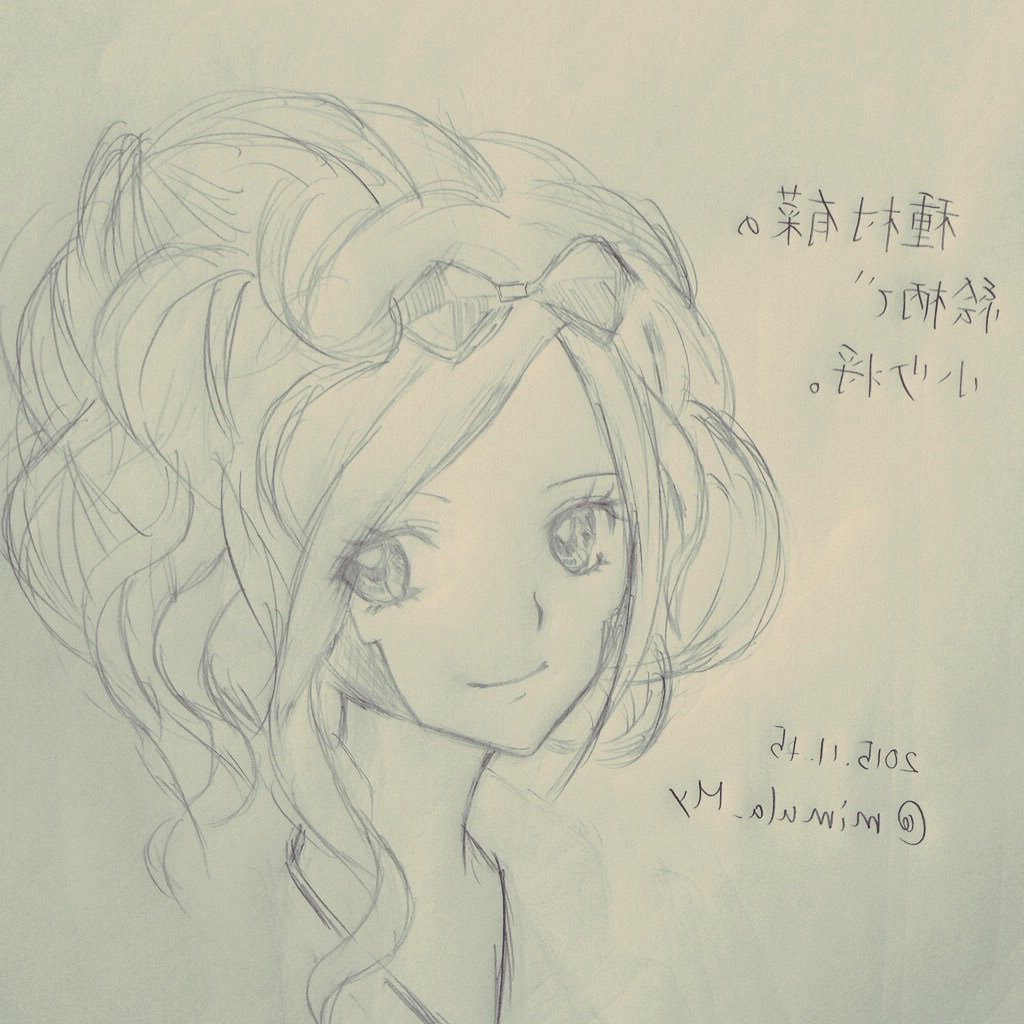 種村有菜の
絵柄で
小少将。
2015.11.15
@mimula_My